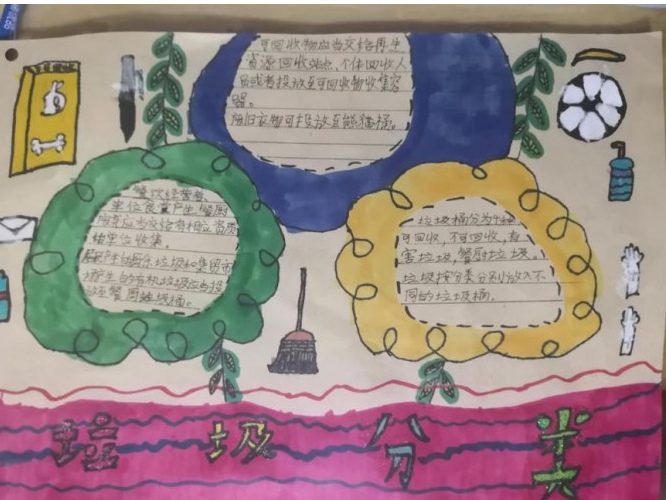 可回收物应当交给再生
资源回收站点、个体回收人
员或者投放至可回收物收集容
器。
废旧衣物可投放至熊猫桶。
餐饮经营者、
单位食堂产生餐厨
垃圾应当交给有相应资质
的单位收集。
居民产生的厨余垃圾和集贸市
场产生的有机垃圾应当投
放至餐厨垃圾桶。
垃圾桶分为4种
可回收,不可回收,有
害垃圾,餐厨垃圾。
垃圾按分类分别放入不
同的垃圾桶.
垃圾分类